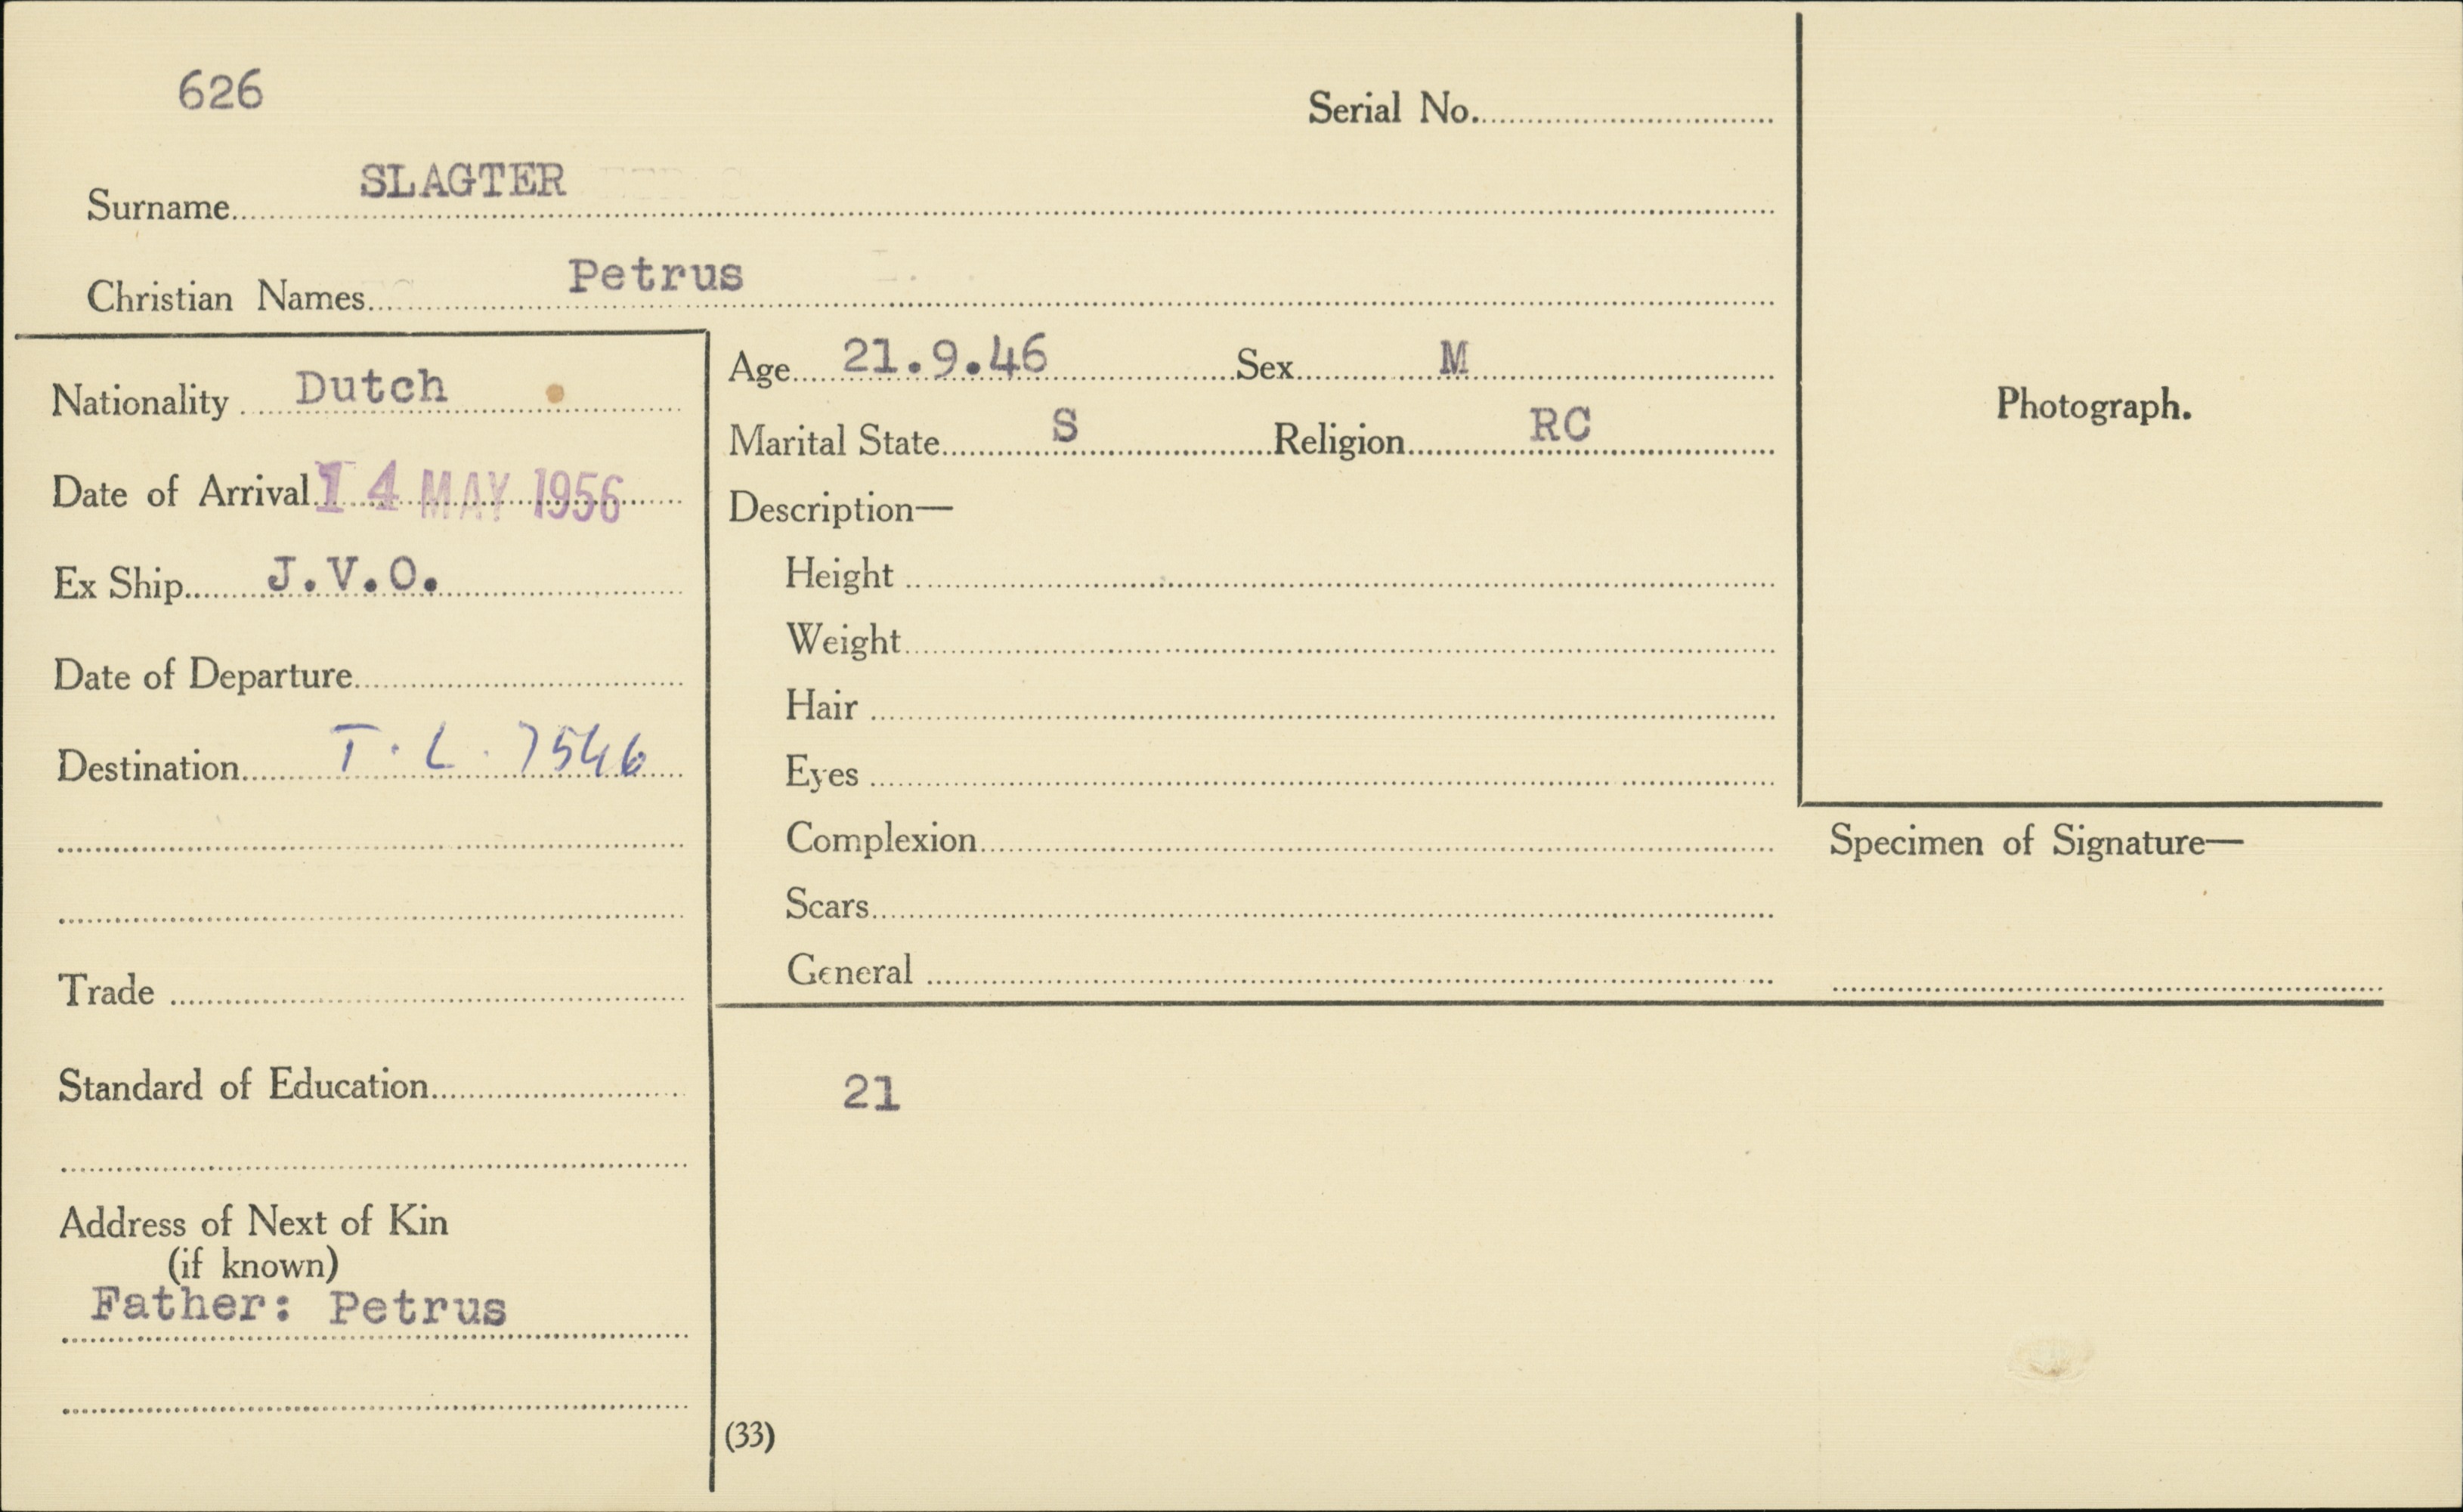 626
Serial No.
Surname SLAGTER
Christian Names Petrus
Nationality Dutch
Date of Arrival 14 MAY 1956
Ex Ship J.V.O.
Date of Departure
Destination T. L. 7546
Trade
Standard of Education
Address of Next of Kin
(if known)
Father: Petrus
Age 21.9.46 Sex M
Marital State S Religion RC
Description—
Height
Weight
Hair
Eyes
Complexion
Scars
General
21
(33)
Photograph.
Specimen of Signature—